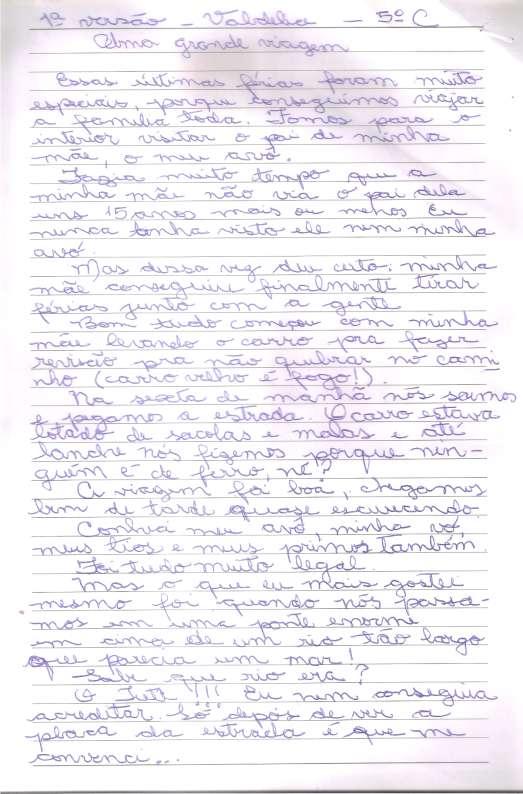 1ª versão - Valdelia - 5º C
Uma grande viagem
Essas últimas férias foram muito
especiais, porque conseguimos viajar
a família toda. Fomos para o
interior visitar o pai de minha
mãe, o meu avô.
Fazia muito tempo que a
minha mãe não via o pai dela
uns 15 anos mais ou menos Eu
nunca tinha visto ele nem minha
avó.
Mas dessa vez deu certo: minha
mãe conseguiu finalmente tirar
férias junto com a gente
Bom tudo começou com minha
mãe levando o carro pra fazer
revisão pra não quebrar no cami
nho (carro velho é fogo!).
Na sexta de manhã nós saímos
e pegamos a estrada. O carro estava
lotado de sacolas e malas e até
lanche nós fizemos porque nin-
guém é de ferro, né?
A viagem foi boa, chegamos
bem de tarde quase escurecendo.
Conheci meu avô, minha vó,
meus tios e meus primos também.
Foi tudo muito legal.
Mas o que eu mais gostei
mesmo foi quando nós passa-
mos em uma ponte enorme
em cima de um rio tão largo
que parecia um mar!
-Sabe que rio era?
O Tietê!!! Eu nem conseguia
acreditar. Só depois de ver a
placa da estrada é que me
convenci...